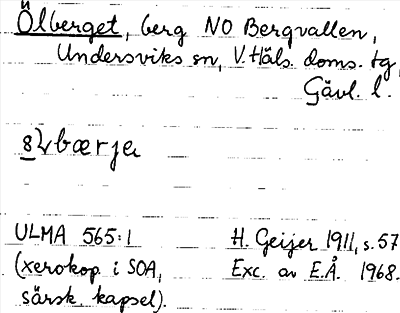 Ölberget, berg NO Bergvallen,
Undersviks sn, V. Häls. doms. tg,
Gävl. l.
bærja
ULMA 565:1 H. Geijer 1911, s. 57
(xerokop i SOA, Exc. av E.Å. 1968.
särsk. kapsel).